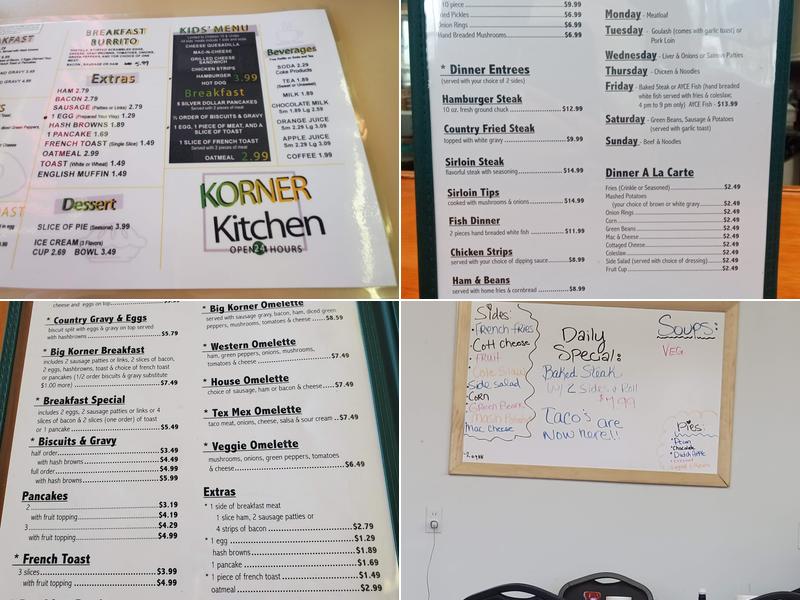 BREAKFAST
BURRITO
Extras
HAM 2.79
BACON 2.79
SAUSAGE (Patties or Links) 2.79
1 EGG (Prepared Your Way) 1.29
HASH BROWNS 1.89
1 PANCAKE 1.69
FRENCH TOAST (Single Slice) 1.49
OATMEAL 2.99
TOAST (White or Wheat) 1.49
ENGLISH MUFFIN 1.49
Dessert
SLICE OF PIE (Seasonal) 3.99
ICE CREAM (3 Flavors)
CUP 2.69 BOWL 3.49
KIDS' MENU
CHEESE QUESADILLA
MAC-N-CHEESE
GRILLED CHEESE
SANDWICH
CHICKEN STRIPS
HAMBURGER
HOT DOG
3.99
Breakfast
5 SILVER DOLLAR PANCAKES
Served with 2 pieces of meat
½ ORDER OF BISCUITS & GRAVY
1 EGG, 1 PIECE OF MEAT, AND A
SLICE OF TOAST
1 SLICE OF FRENCH TOAST
Served with 2 pieces of meat
OATMEAL 2.99
Beverages
SODA 2.29
Coke Products
TEA 1.89
(Sweet or Unsweet)
MILK 1.89
CHOCOLATE MILK
Sm 2.59 Lg 3.09
ORANGE JUICE
Sm 2.29 Lg 3.09
APPLE JUICE
Sm 2.29 Lg 3.09
COFFEE 1.99
KORNER
Kitchen
OPEN 24 HOURS
10 piece $9.99
Pickles $6.99
Onion Rings $6.99
Hand Breaded Mushrooms $6.99
* Dinner Entrees
(served with your choice of 2 sides)
Hamburger Steak
10 oz. fresh ground chuck $12.99
Country Fried Steak
topped with white gravy $9.99
Sirloin Steak
flavorful steak with seasoning $14.99
Sirloin Tips
cooked with mushrooms & onions $14.99
Fish Dinner
2 pieces hand breaded white fish $11.99
Chicken Strips
served with your choice of dipping sauce $8.99
Ham & Beans
served with home fries & cornbread $8.99
Monday - Meatloaf
Tuesday - Goulash (comes with garlic toast) or
Pork Loin
Wednesday - Liver & Onions or Salmon Patties
Thursday - Chicken & Noodles
Friday - Baked Steak or AYCE Fish (hand breaded
white fish served with fries & coleslaw;
4 pm to 9 pm only) AYCE Fish - $13.99
Saturday - Green Beans, Sausage & Potatoes
(served with garlic toast)
Sunday - Beef & Noodles
Dinner A La Carte
Fries (Crinkle or Seasoned) $2.49
Mashed Potatoes
(your choice of brown or white gravy $2.49
Onion Rings $2.49
Corn $2.49
Green Beans $2.49
Mac & Cheese $2.49
Cottaged Cheese $2.49
Coleslaw $2.49
Side Salad (served with choice of dressing) $2.49
Fruit Cup $2.49
cheese and eggs on top
* Country Gravy & Eggs
biscuit split with eggs & gravy on top served
with hashbrowns $5.79
* Big Korner Breakfast
includes 2 sausage patties or links, 2 slices of bacon,
2 eggs, hashbrowns, toast & choice of french toast
or pancakes (1/2 order biscuits & gravy substitute
$1.00 more) $7.49
* Breakfast Special
includes 2 eggs, 2 sausage patties or links or 4
slices of bacon & 2 slices (one order) of toast
or 1 pancake $5.49
* Biscuits & Gravy
half order $3.49
with hash browns $4.99
full order $4.99
with hash browns $5.99
Pancakes
2 $3.19
with fruit topping $4.19
3 $4.29
with fruit topping $4.99
* French Toast
3 slices $3.99
with fruit topping $4.99
* Big Korner Omelette
served with sausage gravy, bacon, ham, diced green
peppers, mushrooms, tomatoes & cheese $8.59
* Western Omelette
ham, green peppers, onions, mushrooms,
tomatoes & cheese $7.49
* House Omelette
choice of sausage, ham or bacon & cheese $7.49
* Tex Mex Omelette
taco meat, onions, cheese, salsa & sour cream $7.49
* Veggie Omelette
mushrooms, onions, green peppers, tomatoes
& cheese $6.49
Extras
* 1 side of breakfast meat
1 slice ham, 2 sausage patties or
4 strips of bacon $2.79
* 1 egg $1.29
hash browns $1.89
1 pancake $1.69
* 1 piece of french toast $1.49
oatmeal $2.99
Sides:
French fries
Cott Cheese
Fruit
Cole Slaw
Side salad
Corn
Green Beans
Mash Potato
Mac Cheese
Daily
Special:
Baked Steak
w/ 2 Sides & Roll
$7.99
Taco's are
Now Here!!
Soups:
VEG
Pies:
Pecan
Chocolate
Dutch Apple